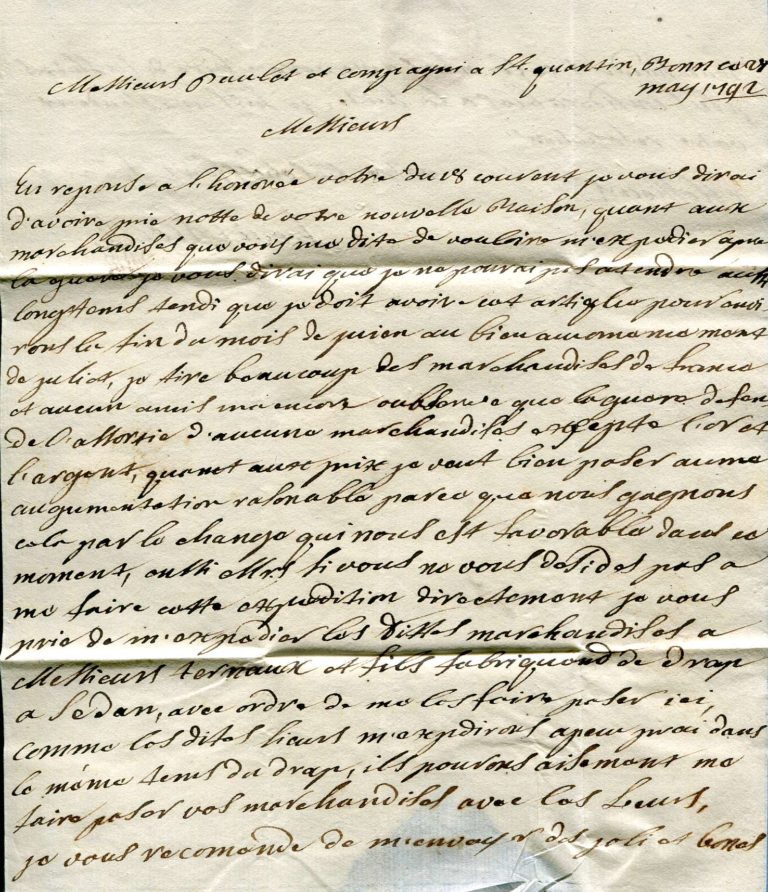 Messieurs Paulet et compagni a St. quantin, Bonn ce 28
may 1792
Messieurs
En reponse a l'honorée votre du 18 courent je vous dirai
d'avoire prie notte de votre nouvelle Raison, quant aux
marchandises que vous me dite de vouloire m'expedier apre
la guere je vous dirai que je ne pourai pas atendre aussi
longtems tendi que je doit avoire cet article pour anvi
rons la fin du mois de juien au bien au comencement
de juliet, je tire beaucoup des marchandises de france
et aucun amis m'a encore oubserve que la guere defen
de l'assortie d'aucune marchandises exepte l'or et
l'argent, quant aux prix je veut bien paser aume
augumentation rasonable parce que nous gagnons
cela par le change qui nous est favorable dans ce
moment, aussi Mrs. si vous ne vous desides pas a
me faire cette expedition directement je vous
prie de m'expedier les dittes marchandises a
Messieurs ternaux et fils fabriquand de drap
a Sedan, avec ordre de me les faire paser ici,
comme les dites sieurs m'expdirons apeu prai dans
le méme tems du drap, ils pourons aisement me
faire paser vos marchandises avec les Leurs,
je vous recomande de m'envoyer des joli et bones